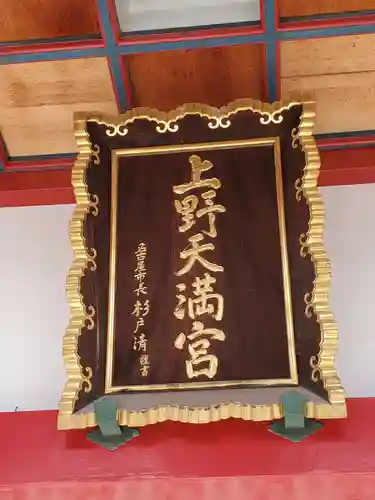 上野天満宮
名古屋市長 杉戸清 謹書